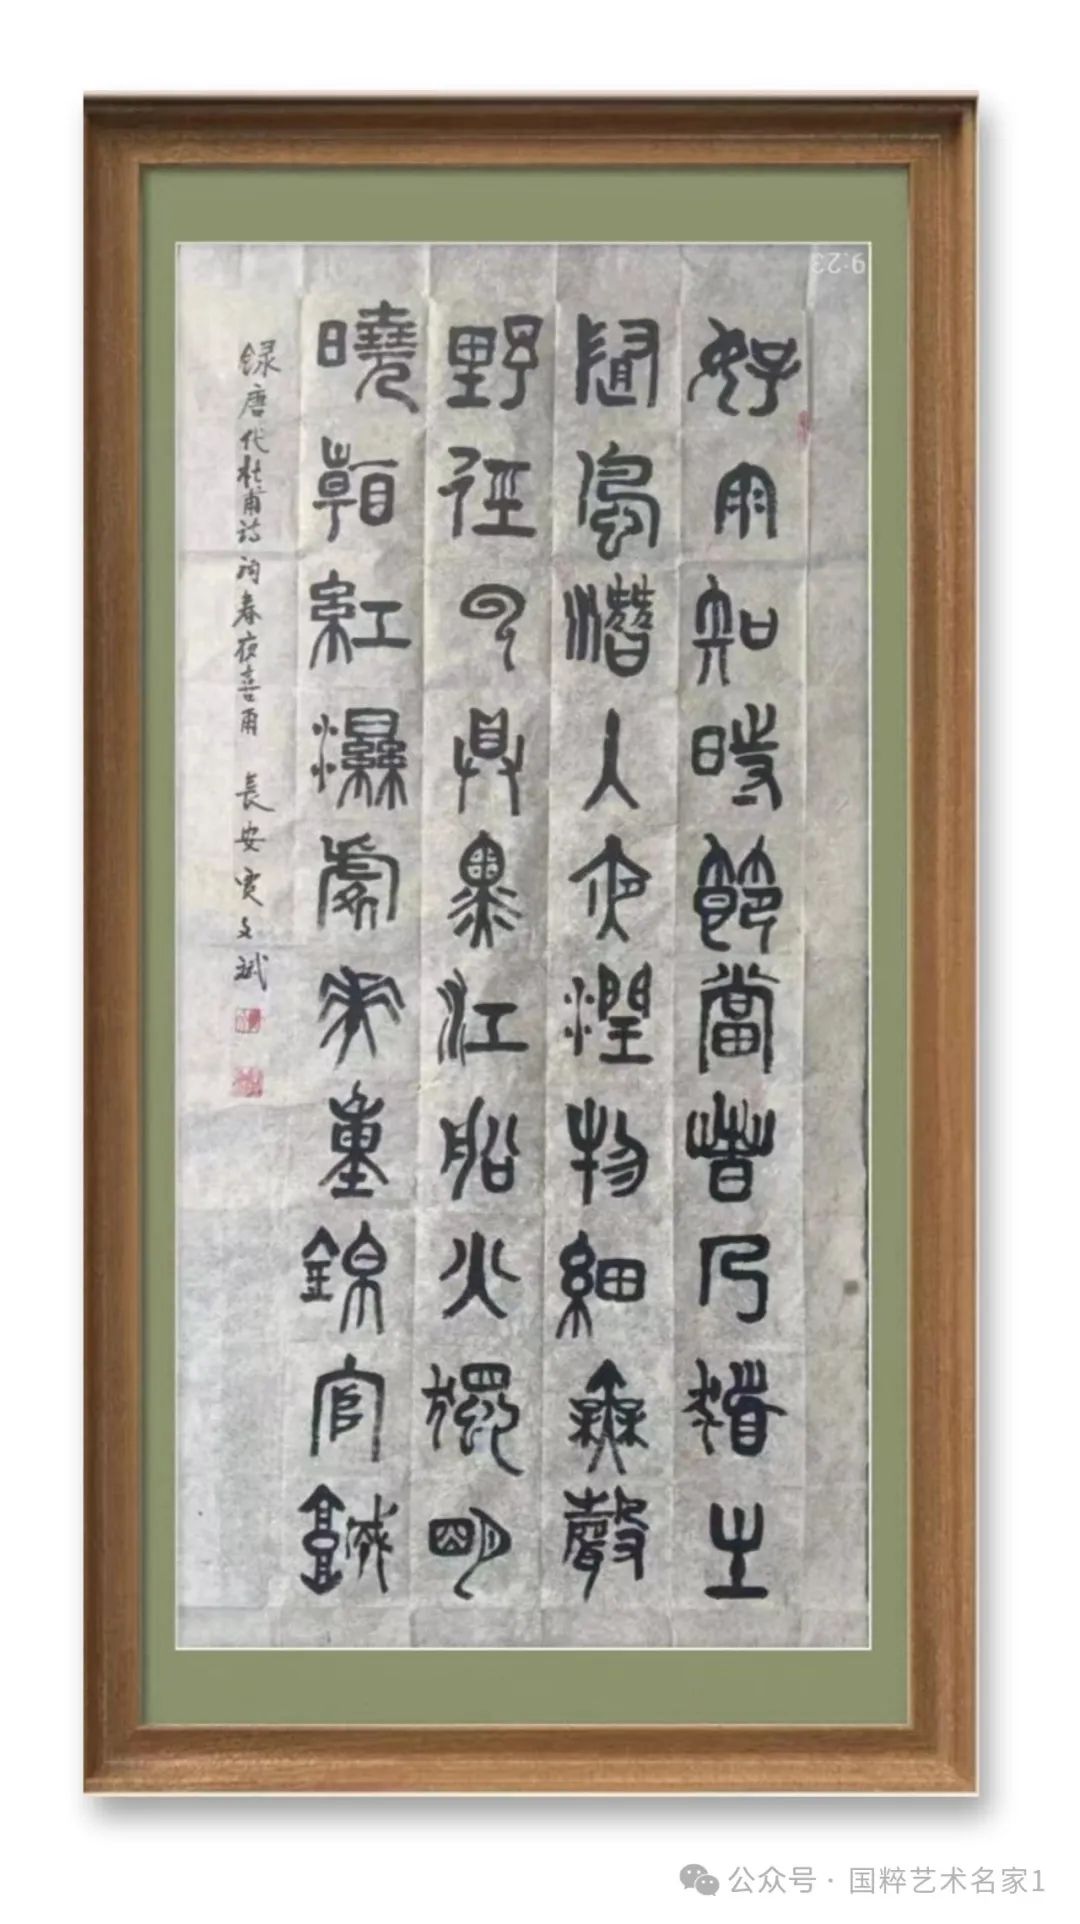 好雨知時節當春乃發生
隨風潛入夜潤物細無聲
野徑雲俱黑江船火獨明
曉看紅濕處花重錦官城
録唐代杜甫诗词春夜喜雨 長安文斌
9:23
公众号 · 国粹艺术名家1